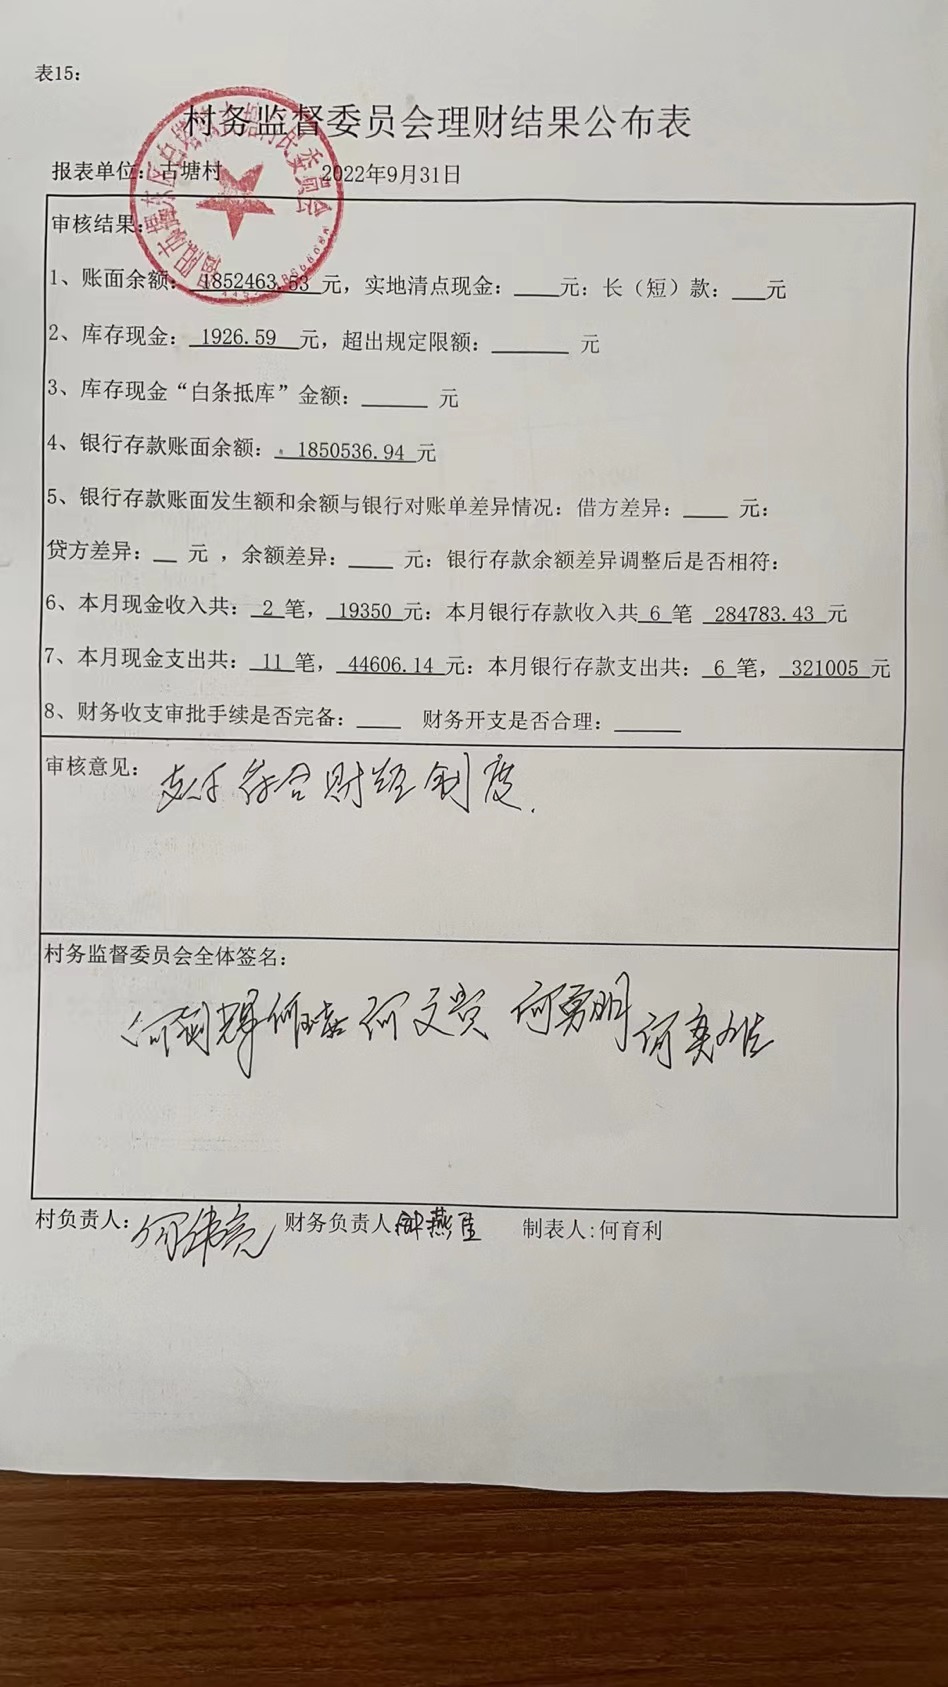 表15:
村务监督委员会理财结果公布表
报表单位: 古塘村 2022年9月31日
审核结果:
1、账面余额: 1852463.53 元, 实地清点现金: ____元: 长（短）款: ___元
2、库存现金: 1926.59 元, 超出规定限额: ______ 元
3、库存现金“白条抵库”金额: _____ 元
4、银行存款账面余额: 1850536.94 元
5、银行存款账面发生额和余额与银行对账单差异情况: 借方差异: ____ 元:
贷方差异: __ 元 , 余额差异: ____ 元: 银行存款余额差异调整后是否相符:
6、本月现金收入共: 2 笔, 19350 元: 本月银行存款收入共 6 笔 284783.43 元
7、本月现金支出共: 11 笔, 44606.14 元: 本月银行存款支出共: 6 笔, 321005 元
8、财务收支审批手续是否完备: ____ 财务开支是否合理: _____
审核意见: 支付符合财经制度.
村务监督委员会全体签名:
何文贤 何勇明
村负责人: 何伟亮 财务负责人 钟燕 制表人:何育利